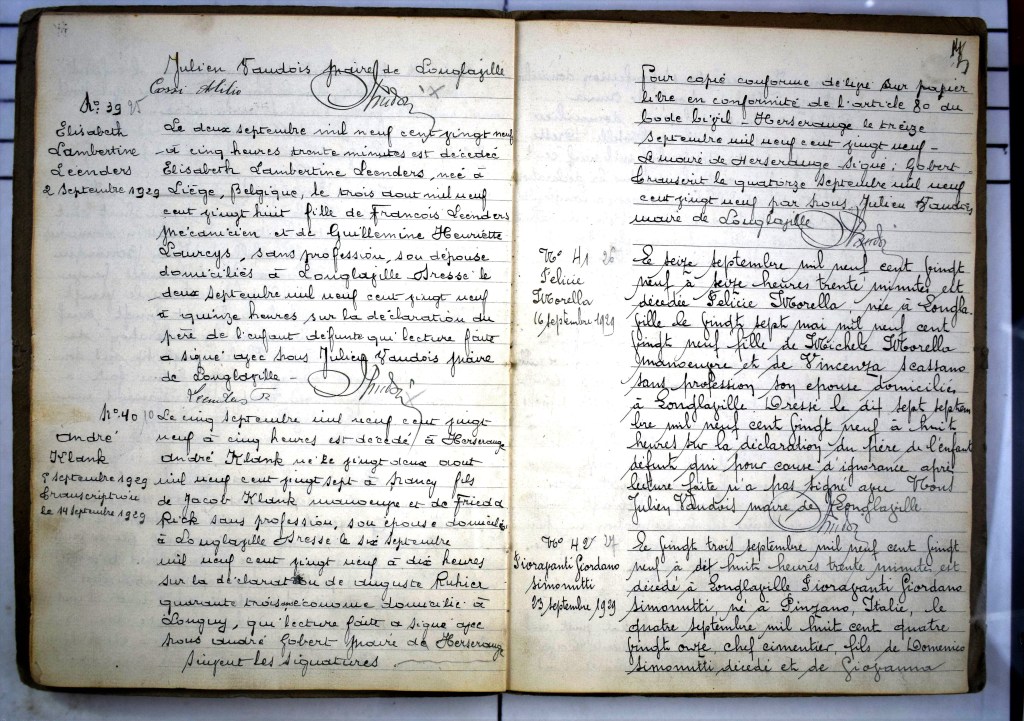 Julien Vaudois maire de Longlaville
Cossi Atilio
No. 39 25
Elisabeth
Lambertine
Leenders
2 septembre 1929
Le deux septembre mil neuf cent vingt neuf
à cinq heures trente minutes est décédée
Elisabeth Lambertine Leenders, née à
Liège, Belgique, le trois août mil neuf
cent vingt huit fille de François Leenders
mécanicien et de Guillemine Henriette
sans profession, son épouse
domiciliés à Longlaville Dressé le
deux septembre mil neuf cent vingt neuf
à quinze heures sur la déclaration du
père de l'enfant défunte qui lecture faite
a signé avec nous Julien Vaudois maire
de Longlaville -
Leenders
No. 40
André
Klank
septembre 1929
transcription
le 14 septembre 1929
Le cinq septembre mil neuf cent vingt
neuf à cinq heures est décédé, à Herserange
André Klank né le vingt deux aout
mil neuf cent vingt sept à Nancy fils
de Jacob Klank manoeuvre et de Frieda
Rick sans profession, son épouse domiciliés
à Longlaville Dressé le six septembre
mil neuf cent vingt neuf à dix heures
sur la déclaration de Auguste Ruhier
quarante trois économe domicilié à
Longwy, qui lecture faite a signé avec
nous André Gobert maire de Herserange
suivent les signatures
Pour copie conforme délivré sur papier
libre en conformité de l'article 80 du
Code Civil - Herserange le treize
septembre mil neuf cent vingt neuf -
Le maire de Herserange signé: Gobert
Transcrit le quatorze septembre mil neuf
cent vingt neuf par nous Julien Vaudois
maire de Longlaville
No 41 26
Felicie
Morella
16 septembre 1929
Le seize septembre mil neuf cent vingt
neuf à seize heures trente minutes est
décédée Felicie Morella, née à Longla-
ville le vingt sept mai mil neuf cent
vingt neuf fille de Michele Morella
manoeuvre et de Vincenza Scassano
sans profession son epouse domiciliés
à Longlaville. Dressé le dix sept septem
bre mil neuf cent vingt neuf à huit
heures sur la déclaration du père de l'enfant
défunt qui pour cause d'ignorance après
lecture faite n'a pas signé avec Nous
Julien Vaudois maire de Longlaville
No 42 27
Fioravanti Giordano
Simonutti
23 septembre 1929
Le vingt trois septembre mil neuf cent vingt
neuf à dix huit heures trente minutes est
décédé à Longlaville Fioravanti Giordano
Simonutti, né à Pinzano, Italie, le
quatre septembre mil huit cent quatre
vingt onze, chef cimentier, fils de Domenico
Simonutti décédé et de Giovanna